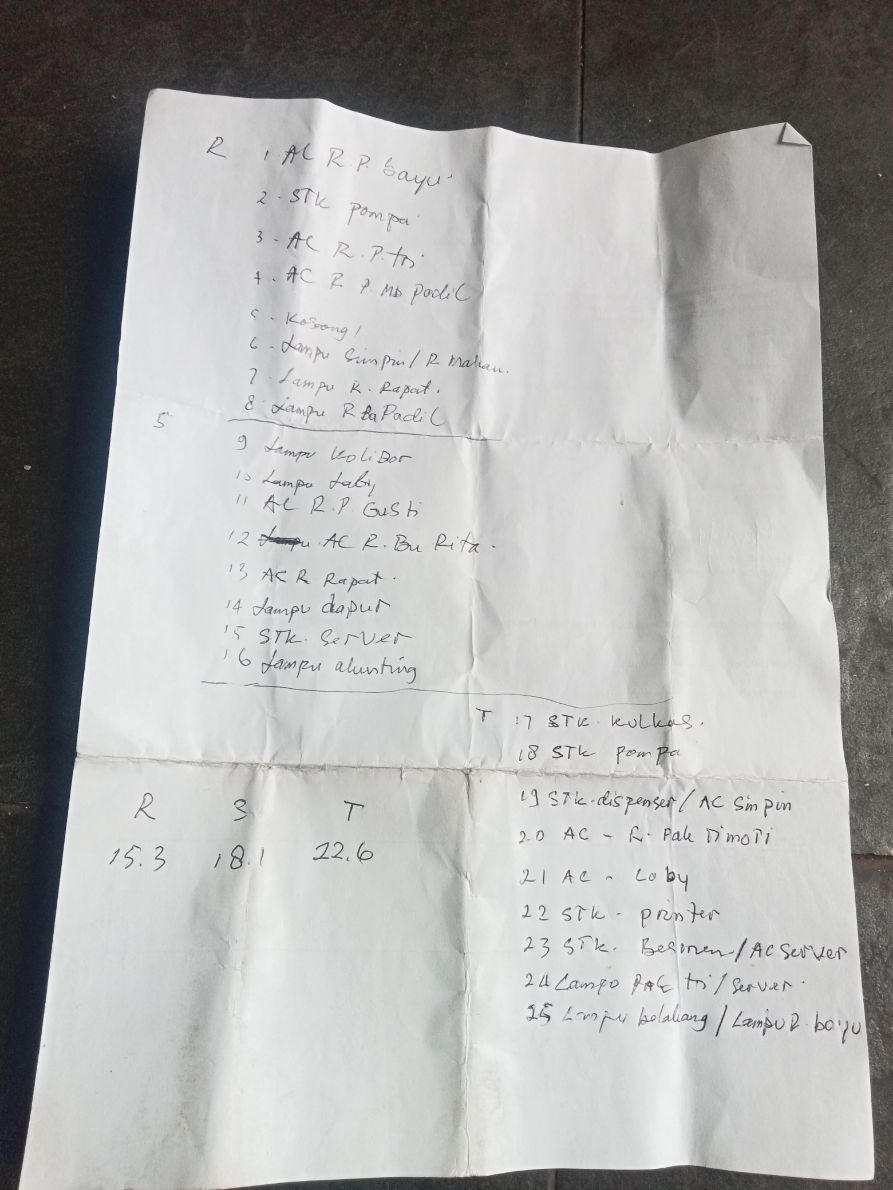 R 1 AC R P bayu
2 - STK pompa
3 - AC R. P. tri
4 - AC R P. MD Padil
5 - Kosong
6 - Lampu Simpin / R Makan.
7 - Lampu R. Rapat.
8 Lampu R Padil
S
9 Lampu KoLiDor
10 Lampu Loby
11 AC R.P. Gusti
12 AC R. Bu Rita.
13 AC R Rapat.
14 Lampu dapur
15 STK. Server
16 Lampu
T 17 STK. Kulkas.
18 STK pompa
19 STK-dispenser / AC Simpin
20 AC - R. Pak TimoTi
21 AC - Loby
22 STK - printer
23 STK. / AC Server
24 Lampo PAK tri / Server.
25 Lampu belakang / Lampu R. bayu
R S T
15.3 18.1 22.6